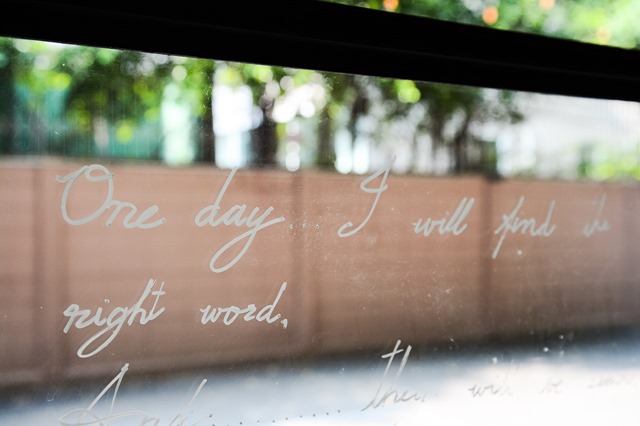 One day I will find the
right word,
And........... they will be